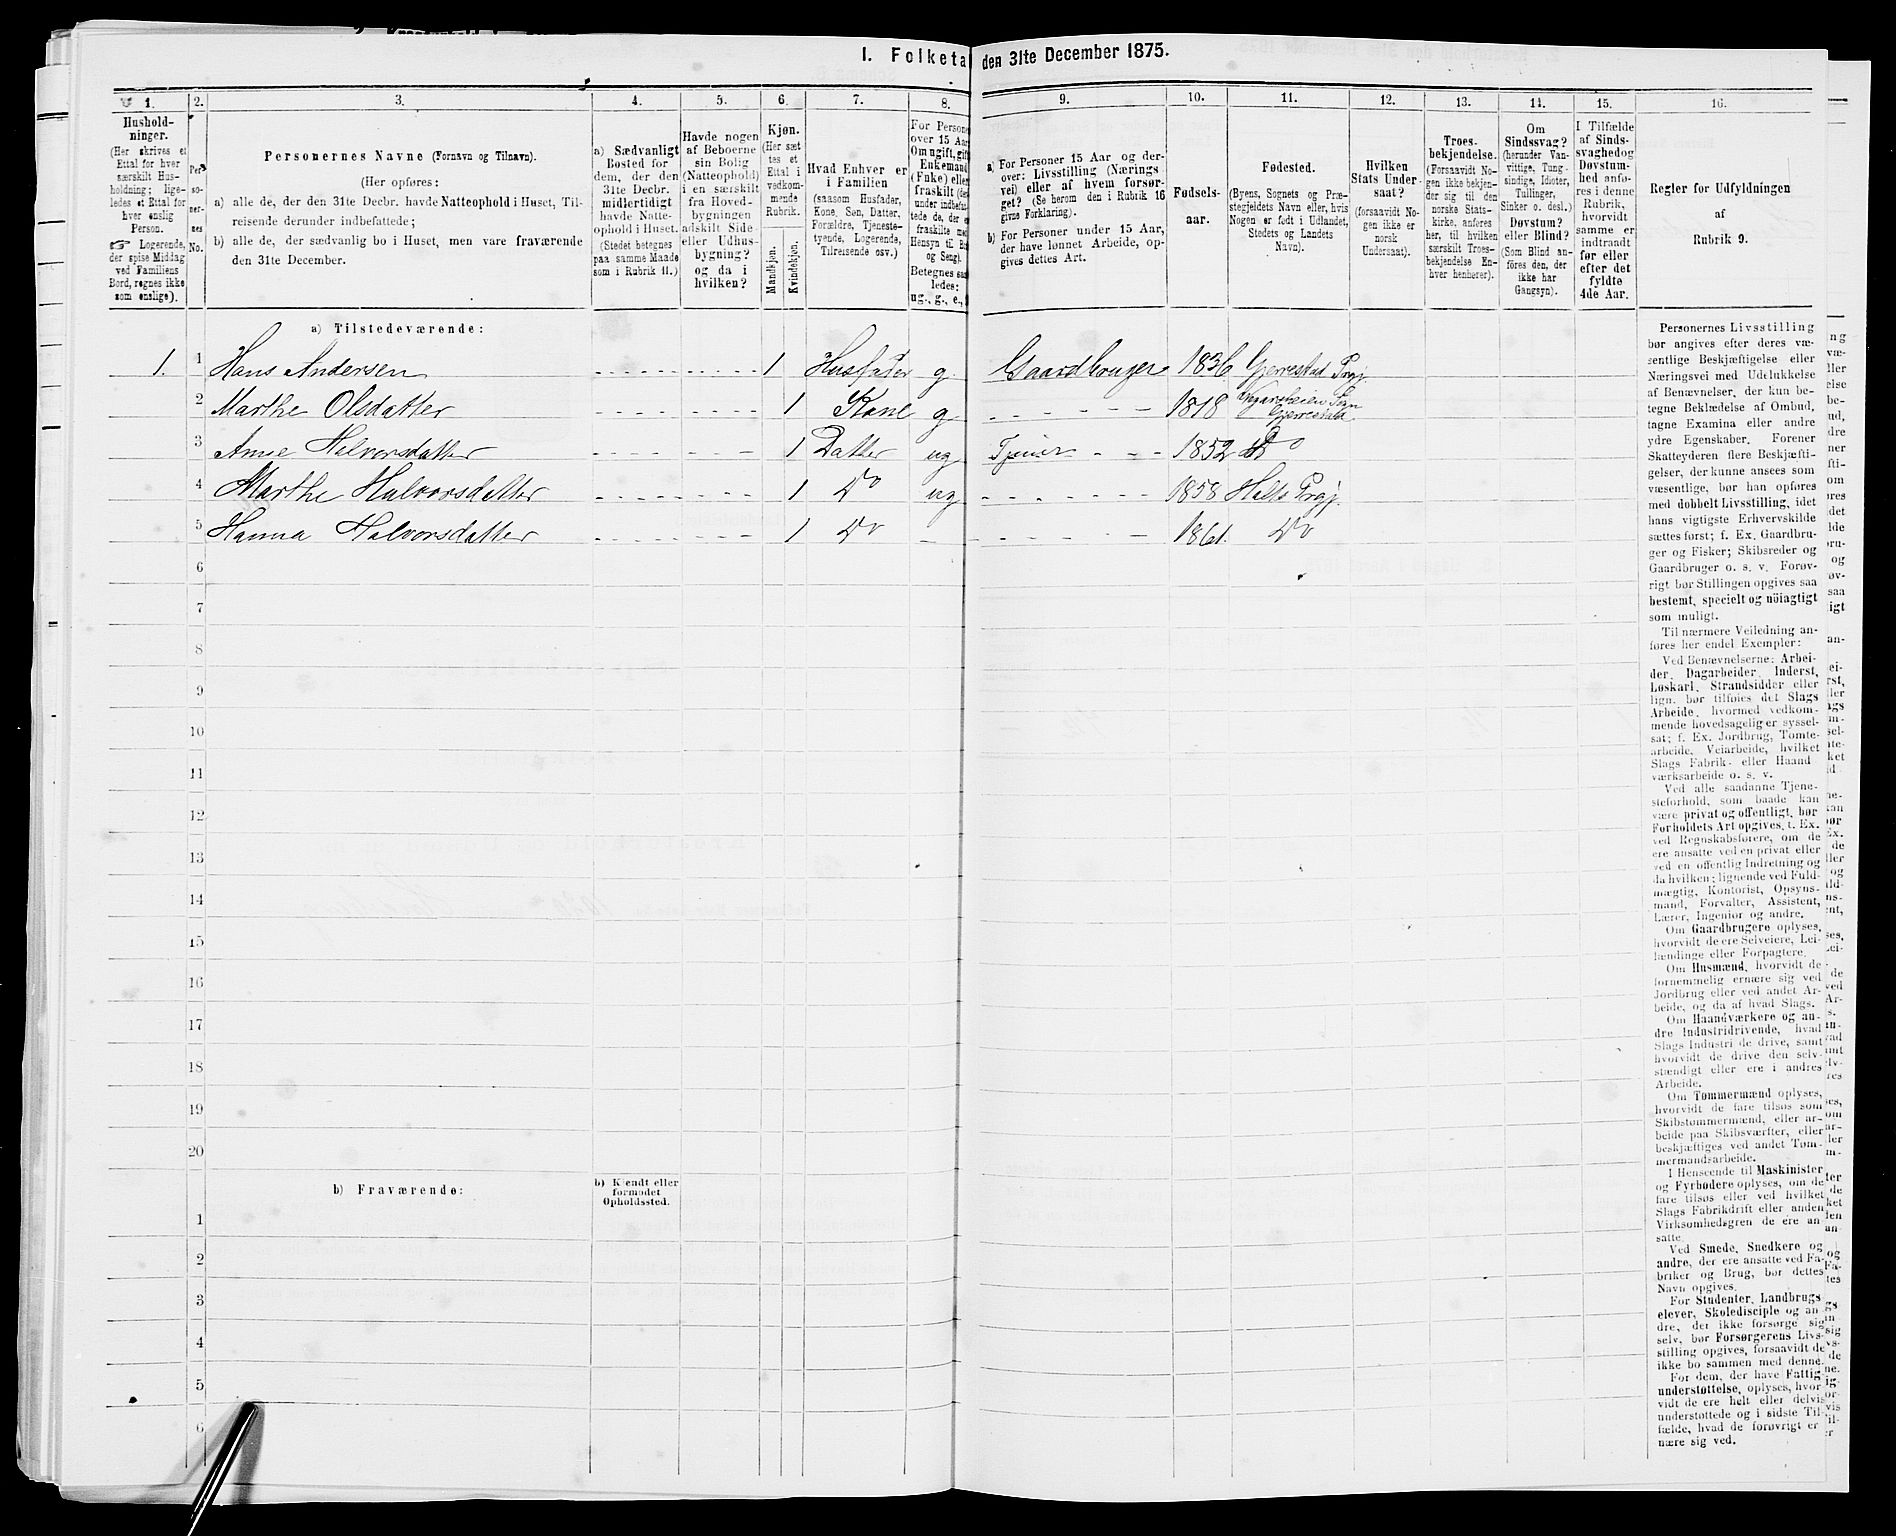 I. Folketa den 31te December 1875.
1. 2. 3. 4. 5. 6. 7. 8. 9. 10. 11. 12. 13. 14. 15. 16.
Hushold-
ninger.
(Her skrives et
Ettal for hver
særskilt Hus-
holdning; lige-
ledes et Ettal for
hver enslig
Person.
☞ Logerende,
der spise Middag
ved Familiens
Bord, regnes ikke
som enslige).
Per-
so-
ner-
nes
No.
Personernes Navne (Fornavn og Tilnavn).
(Her opføres:
a) alle de, der den 31te Decbr. havde Natteophold i Huset, Til-
reisende derunder indbefattede;
b) alle de, der sædvanlig bo i Huset, men vare fraværende
den 31te December.
a) Sædvanligt
Bosted for
dem, der den
31te Decbr.
midlertidigt
havde Natte-
ophold i Huset.
(Stedet betegnes
paa samme Maade
som i Rubrik 11.)
Havde nogen
af Beboerne
sin Bolig
(Natteophold)
i en særskilt
fra Hoved-
bygningen
adskilt Side-
eller Udhus-
bygning?
og da i
hvilken?
Kjøn.
(Her sæt
tes et
Ettal i
vedkom-
mende
Rubrik.
Mandkjøn.
Kvindekjøn.
Hvad Enhver er
i Familien
(saasom Husfader,
Kone, Søn, Datter,
Forældre, Tjeneste-
tyende, Logerende,
Tilreisende osv.)
For Persone
over 15 Aar
Om ugift, gift
Enkemand
(Enke) elle
fraskilt (der
under indbefat
tede de, der e
fraskilte med
Hensyn til Bo
og Seng).
Betegnes saa
ledes:
ug., g., e.,
a) For Personer 15 Aar og der-
over: Livsstilling (Nærings
vei) eller af hvem forsør-
get? (Se herom den i Rubrik 16
givne Forklaring).
b) For Personer under 15 Aar,
der have lønnet Arbeide, op-
gives dettes Art.
Fødsels-
aar.
Fødested.
(Byens, Sognets og Præ-
stegjeldets Navn eller, hvis
Nogen er født i Udlandet,
Stedets og Landets
Navn).
Hvilken
Stats Under-
saat?
(forsaavidt No-
gen ikke er
norsk
Undersaat).
Troes-
bekjendelse.
(Forsaavidt No-
gen ikke bekjen-
der sig til den
norske Stats-
kirke, anføres
her, til hvilken
særskilt Troes-
bekjendelse En-
hver henhører).
Om
Sindssvag?
(herunder Van-
vittige, Tung-
sindige, Idioter,
Tullinger,
Sinker o. desl.)
Døvstum?
eller Blind?
(Som Blind an-
føres den, der
ikke har
Gangsyn).
I Tilfælde
af Sinds-
svaghed og
Døvstum-
hed anfø-
res i denne
Rubrik,
hvorvidt
samme er
indtraadt
før eller
efter det
fyldte
4de Aar.
Regler for Udfyldningen
af
Rubrik 9.
a) Tilstedeværende:
1. 1 Hans Andersen 1 Husfader g. Gaardbruger 1836 Gjerrestad Prgj.
2 Marthe Olsdatter 1 Kone g 1818 Vegarsheien Sogn
Gjerrestad
3 Anne Halvorsdatter 1 Datter ug Tjener 1852 Do
4 Marthe Halvorsdatter 1 Do ug 1858 Holts Prgj.
5 Hanna Halvorsdatter 1 Do 1861. Do
6
7
8
9
10
11
12
13
14
15
16
17
18
19
20
b) Fraværende:
b) Kjendt eller
formodet
Opholdssted.
1
2
3
4
5
6
Personernes Livsstilling
bør angives efter deres væ-
sentlige Beskjæftigelse eller
Næringsvei med Udelukkelse
af Benævnelser, der kun be-
tegne Beklædelse af Ombud,
tagne Examina eller andre
ydre Egenskaber. Forener
Skatteyderen flere Beskjæfti-
gelser, der kunne ansees som
væsentlige, bør han opføres
med dobbelt Livsstilling, idet
hans vigtigste Erhvervskilde
sættes først; f. Ex. Gaardbru-
ger og Fisker; Skibsreder og
Gaardbruger o. s. v. Forøv-
rigt bør Stillingen opgives saa
bestemt, specielt og nöiagtigt
som muligt.
Til nærmere Veiledning an-
føres her endel Exempler:
Ved Benævnelserne: Arbei-
der, Dagarbeider, Inderst,
Løskarl, Strandsidder eller
lign. bør tilføies det Slags
Arbeide, hvormed vedkom-
mende hovedsagelig er syssel-
sat; f. Ex. Jordbrug, Tomte-
arbeide, Veiarbeide, hvilket
Slags Fabrik- eller Haand
værksarbeide o. s. v.
Ved alle saadanne Tjene-
steforhold, som baade kan
være privat og offentligt, bør
Forholdets Art opgives, t. Ex.
ved Regnskabsførere, om de
ere ansatte ved en privat eller
ved en offentlig Indretning og
da hvilken; lignende ved Fuld-
mægtig, Kontorist, Opsyns-
mand, Forvalter, Assistent,
Lærer, Ingeniør og andre.
Om Gaardbrugere oplyses,
hvorvidt de ere Selveiere, Lei-
lændinge eller Forpagtere.
Om Husmænd, hvorvidt de
fornemmelig ernære sig ved
Jordbrug eller ved andet Ar-
beide, og da af hvad Slags.
Om Haandværkere og an-
dre Industridrivende, hvad
Slags Industri de drive, samt
hvorvidt de drive den selv-
stændigt eller ere i andres
Arbeide.
Om Tømmermænd oplyses,
hvorvidt de fare tilsøs som
Skibstømmermænd, eller ar-
beide paa Skibsværfter, eller
beskjæftiges ved andet Tøm-
mermandsarbeide.
I Henseende til Maskinister
og Fyrbødere oplyses, om de
fare tilsøs eller ved hvilket
Slags Fabrikdrift eller anden
Virksomhedsgren de ere an-
satte.
Ved Smede, Snedkere og
andre, der ere ansatte ved Fa-
briker og Brug, bør dettes
Navn opgives.
For Studenter, Landbrugs
elever, Skoledisciple og an
dre, der ikke forsørge sig
selv, bør Forsørgerens Livs-
stilling opgives, forsaavidt de
ikke bo sammen med denne.
For dem, der have Fattig-
understøttelse, oplyses, hvor-
vidt de ere helt eller delvis
understøttede og i sidste Til-
fælde, hvad de forøvrigt er
nære sig ved.